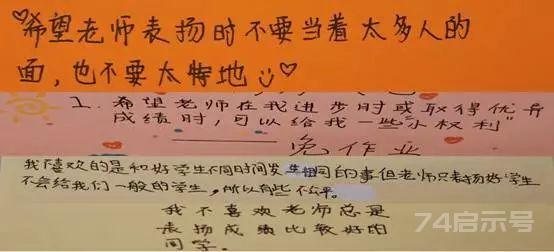 ♡希望老师表扬时不要当着太多人的
面,也不要太特地☺♡
1. 希望老师在我进步时或取得优异
成绩时,可以给我一些“小权利”
——免作业
我不喜欢的是和好学生不同时间发生相同的事但老师只表扬好学生
不会给我们一般的学生,所以有些不公平。
我不喜欢老师总是
表扬成绩比较好的
同学。
74启示号